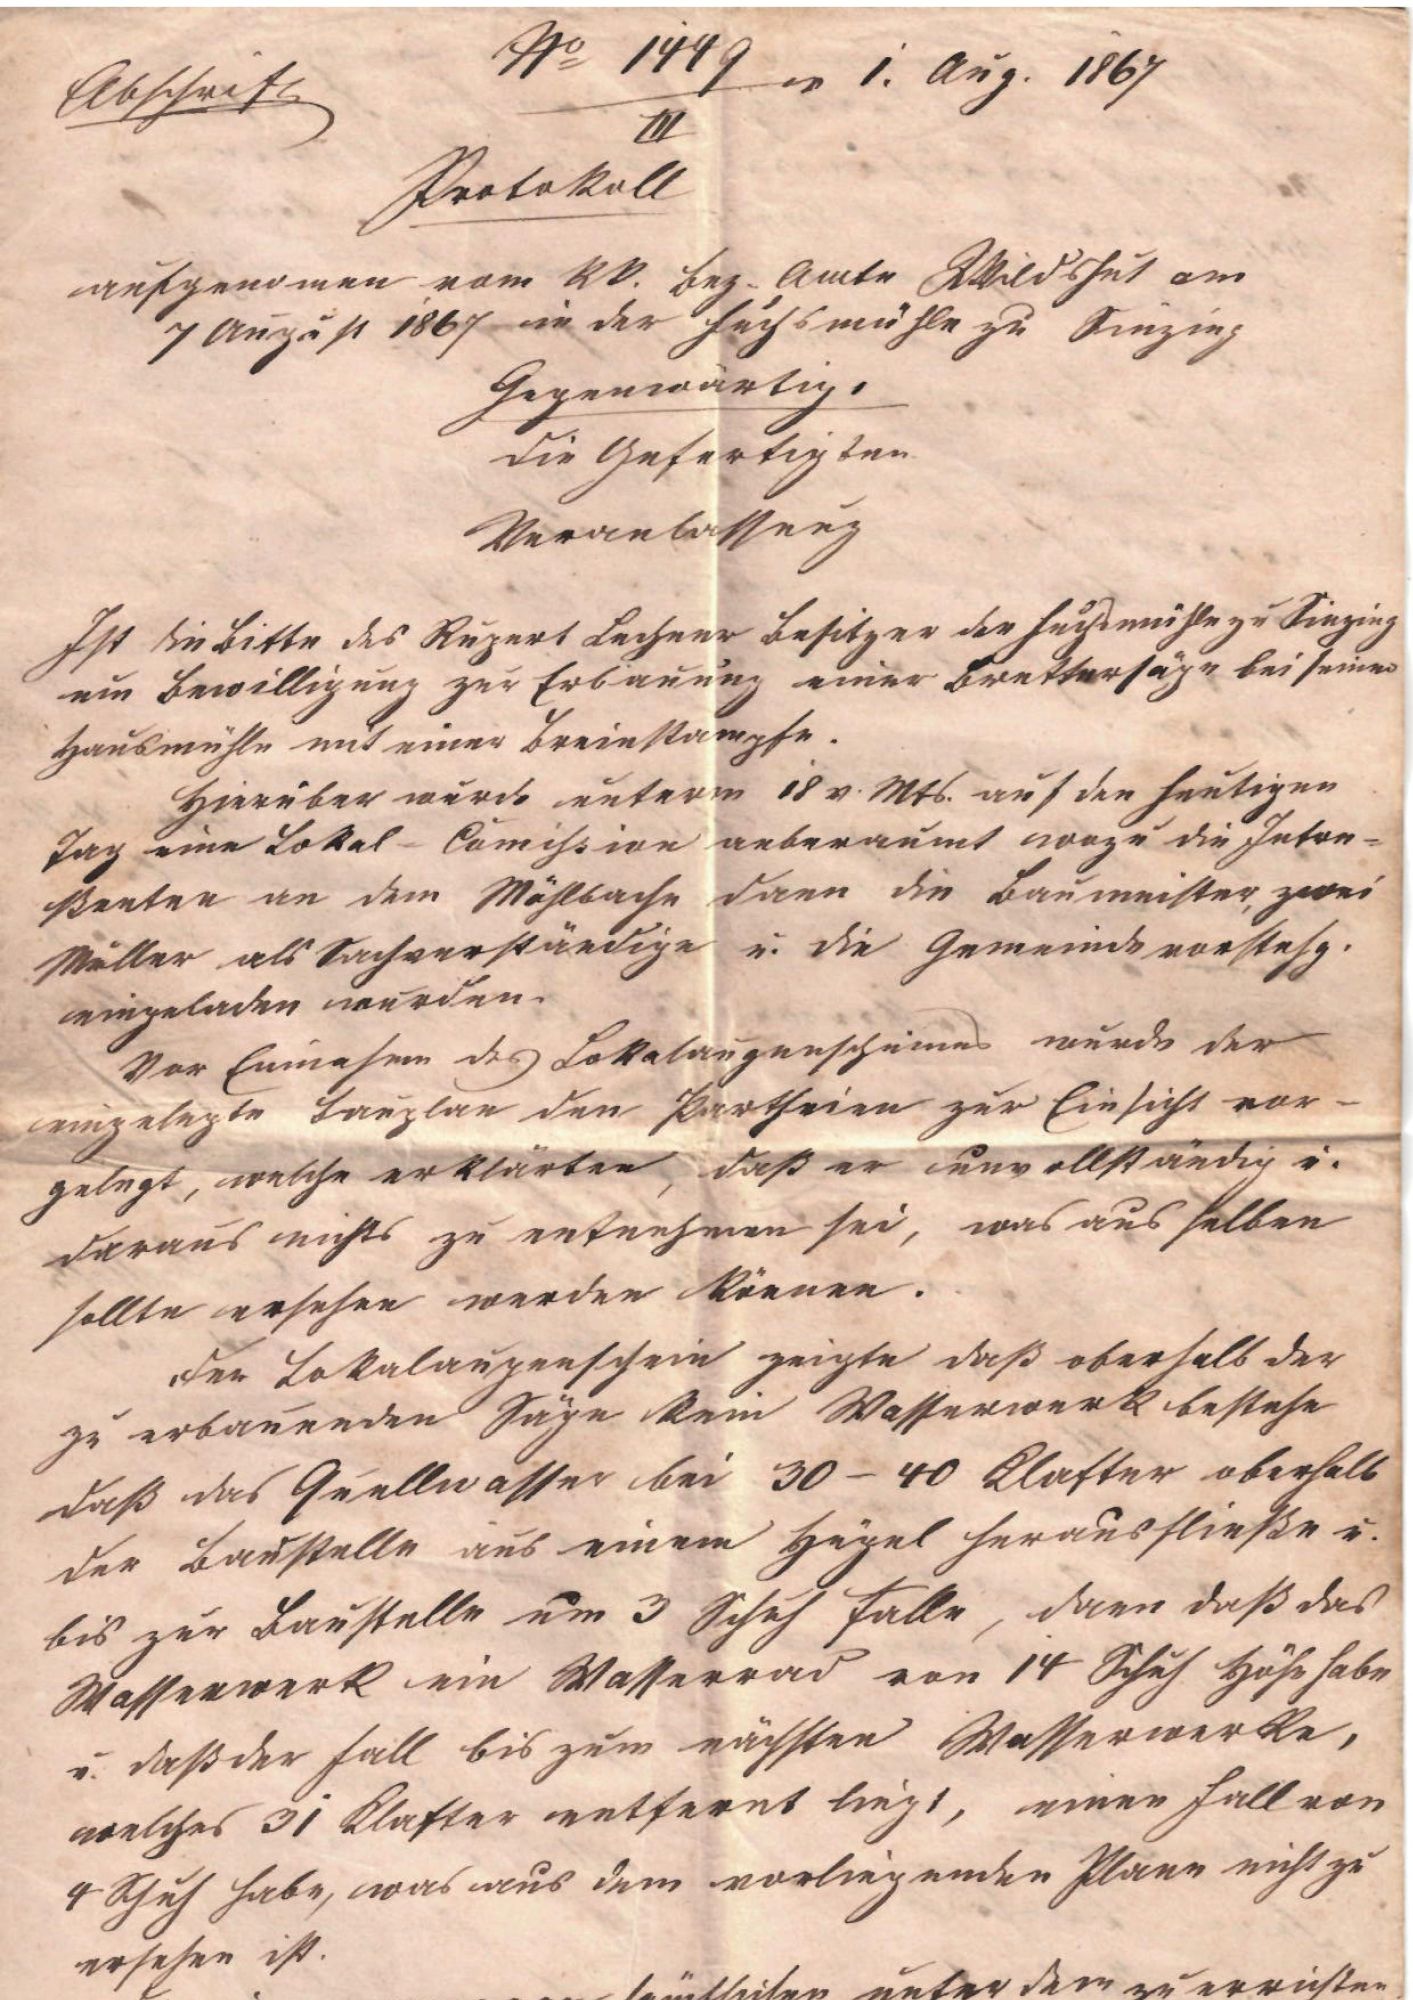 Abschrift
No 1449 1. Aug. 1867
III
Protokoll
aufgenomen vom kk. Bez. Amte Wildshut am
7 August 1867 in der Fuchsmühle zu Sinzing
Gegenwärtig.
die Gefertigten
Veranlassung
Ist die Bitte des Rupert Lechner Besitzer der Fuchsmühle zu Sinzing
um Bewilligung zur Erbauung einer Brettersäge bei seiner
Hausmühle mit einer Breinstampfe.
Hierüber wurde unterm 18 v. Mts. auf den heutigen
Tag eine Lokal-Comission anberaumt wozu die Intre=
ßenten an dem Mühlbache dann die Baumeister, zwei
Müller als Sachverständige u. die Gemeindevorstehg.
eingeladen wurden.
Vor Einnahme des Lokalaugenscheines wurde der
eingelegte Bauplan den Partheien zur Einsicht vor-
gelegt, welche erklärten, daß er unvollständig u.
daraus nichts zu entnehmen sei, was aus selben
sollte ersehen werden können.
Der Lokalaugenschein zeigte daß oberhalb der
zu erbauenden Säge kein Wasserwerk bestehe
daß das Quellwasser bei 30-40 Klafter oberhalb
der Baustelle aus einem Hügel herausfließe u.
bis zur Baustelle um 3 Schuh falle, dann daß das
Wasserwerk ein Wasserrad von 14 Schuh Höhe habe
u. daß der Fall bis zum nächsten Wasserwerke,
welches 31 Klafter entfernt liegt, einen Fall von
4 Schuh habe, was aus dem vorliegenden Plane nicht zu
ersehen ist.
unter dem zu errichten